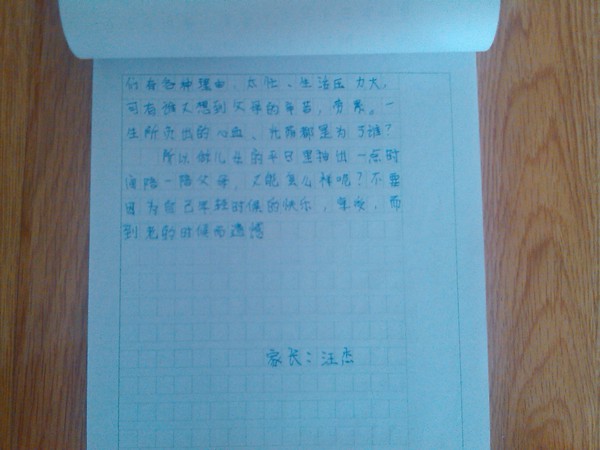 们有各种理由，太忙、生活压力大，
可有谁又想到父母的辛苦，劳累。一
生所付出的心血、光阴都是为了谁？
所以做儿女的平日里抽出一点时
间陪一陪父母，又能怎么样呢？不要
因为自己年轻时候的快乐，享受，而
到老的时候而遗憾
家长：汪杰